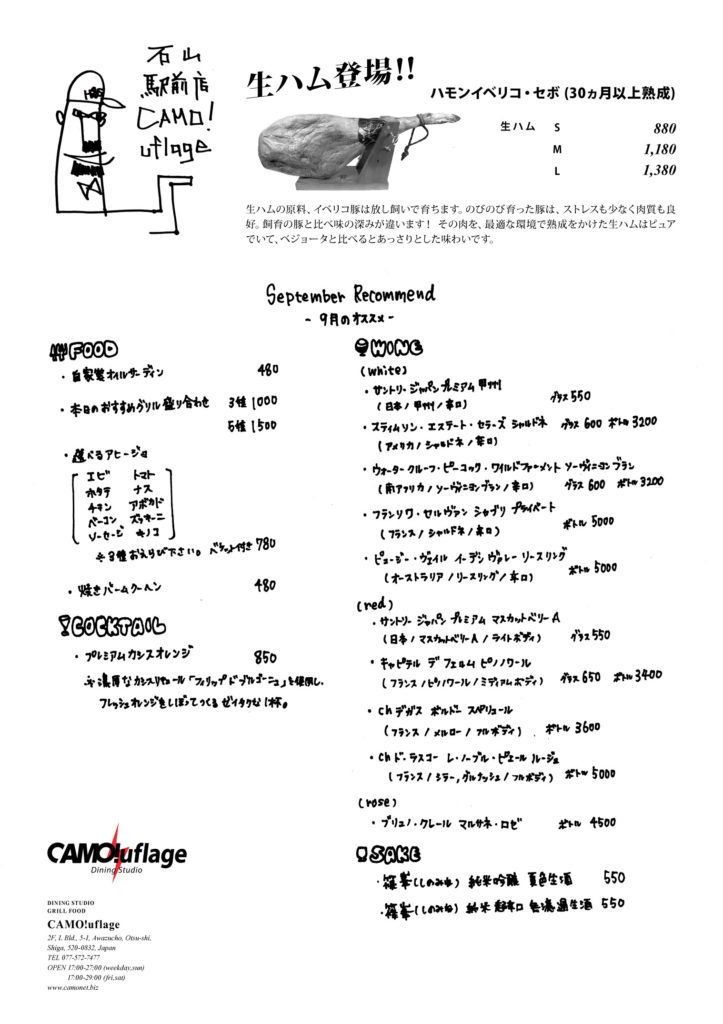 石山
駅前店
CAMO!
uflage
生ハム登場!!
ハモンイベリコ・セボ (30ヵ月以上熟成)
生ハム S 880
M 1,180
L 1,380
生ハムの原料、イベリコ豚は放し飼いで育ちます。のびのび育った豚は、ストレスも少なく肉質も良
好。飼育の豚と比べ味の深みが違います! その肉を、最適な環境で熟成をかけた生ハムはピュア
でいて、ベジョータと比べるとあっさりとした味わいです。
September Recommend
- 9月のオススメ -
FOOD
・自家製オイルサーディン 480
・本日のおすすめグリル盛り合わせ 3種 1000
5種 1500
・選べるアヒージョ
エビ トマト
ホタテ ナス
チキン アボカド
ベーコン ズッキーニ
ソーセージ キノコ
※3種お選び下さい。バケット付き 780
・焼きバームクーヘン 480
COCKTAIL
・プレミアムカシスオレンジ 850
※濃厚なカシスリキュール「フィリップ ド ブルゴーニュ」を使用し、
フレッシュオレンジをしぼってつくるゼイタクな1杯。
WINE
(white)
・サントリー ジャパンプレミアム 甲州 グラス 550
(日本 / 甲州 / 辛口)
・スティムソン・エステート・セラーズ シャルドネ グラス 600 ボトル 3200
(アメリカ / シャルドネ / 辛口)
・ウォーター クルーフ・ピーコック・ワイルドファーメント ソーヴィニヨン ブラン
(南アフリカ / ソーヴィニヨン ブラン / 辛口) グラス 600 ボトル 3200
・フランソワ・セルヴァン シャブリ プライベート
(フランス / シャルドネ / 辛口) ボトル 5000
・ピュージー・ヴェイル イーデン ヴァレー リースリング
(オーストラリア / リースリング / 辛口) ボトル 5000
(red)
・サントリー ジャパン プレミアム マスカットベリーA
(日本 / マスカットベリーA / ライトボディ) グラス 550
・キャピテル デ フェルム ピノノワール
(フランス / ピノノワール / ミディアムボディ) グラス 650 ボトル 3400
・Ch デガス ボルドー スペリュール
(フランス / メルロー / フルボディ) ボトル 3600
・Ch ド・ラスコー レ・ノーブル・ピエール ルージュ
(フランス / シラー, グルナッシュ / フルボディ) ボトル 5000
(rose)
・ブリュノ・クレール マルサネ・ロゼ ボトル 4500
SAKE
・篠峯(しのみね) 純米吟醸 夏色生酒 550
・篠峯(しのみね) 純米 超辛口 無濾過生酒 550
CAMO!uflage
Dining Studio
DINING STUDIO
GRILL FOOD
CAMO!uflage
2F, L Bld., 5-1, Awazucho, Otsu-shi,
Shiga, 520-0832, Japan
TEL 077-572-7477
OPEN 17:00-27:00 (weekday,sun)
17:00-29:00 (fri,sat)
www.camonet.biz